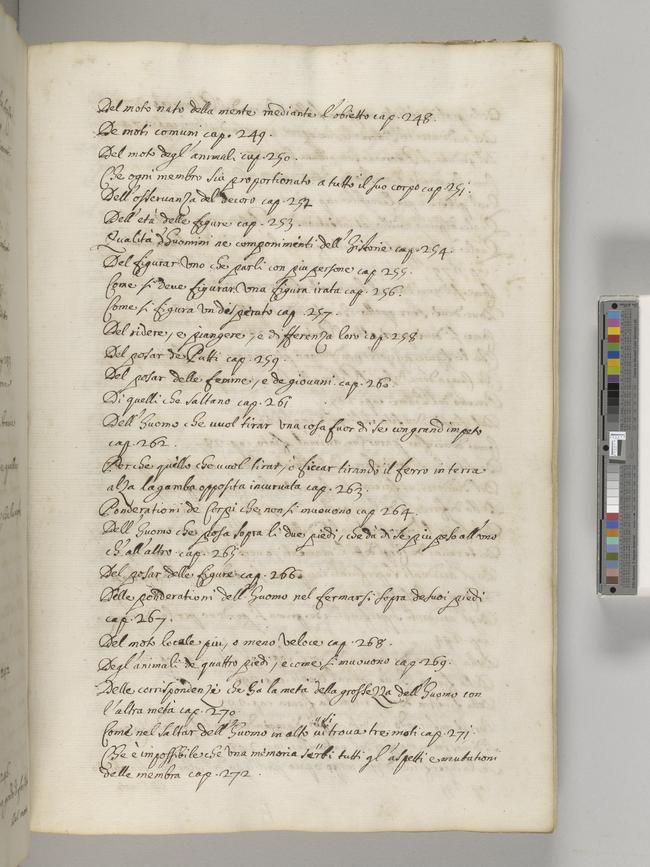 Del moto nato della mente mediante l'obietto cap. 248.
De moti comuni cap. 249.
Del moto degl'animali cap. 250.
Che ogni membro sia proportionato a tutto il suo corpo cap. 251.
Dell'osservanza del decoro cap. 252
Dell'età delle figure cap. 253.
Qualità d'huomini ne componimenti dell'Historie cap. 254.
Del figurar uno che parli con piu persone cap 255.
Come si deve figurar una figura irata cap. 256.
Come si figura un disperato cap. 257.
Del ridere, e piangere, e differenza loro cap. 258
Del posar de Putti cap. 259.
Del posar delle femine, e de giovani cap. 260
Di quelli che saltano cap. 261
Dell'huomo che vuol tirar una cosa fuor di se con grand'impeto
cap. 262.
Perche quello che vuol tirar, o ficcar tirando il ferro in terra
alza la gamba opposita incurvata cap. 263.
Ponderationi de Corpi che non si muovono cap 264.
Dell'huomo che posa sopra li due piedi, che dà di se piu peso all'uno
ch'all'altro cap. 265.
Del posar delle figure cap. 266.
Delle ponderationi dell'huomo nel fermarsi sopra de suoi piedi
cap. 267.
Del moto locale piu, o meno veloce cap. 268.
Degl'animali de quattro piedi, e come si muovono cap. 269.
Delle corrispondenze che ha la metà della grossezza dell'huomo con
l'altra metà cap. 270
Come nel saltar dell'huomo in alto vi si trova tre moti cap. 271.
Che è impossibile che una memoria serbi tutti gl'aspetti e mutationi
delle membra cap. 272.